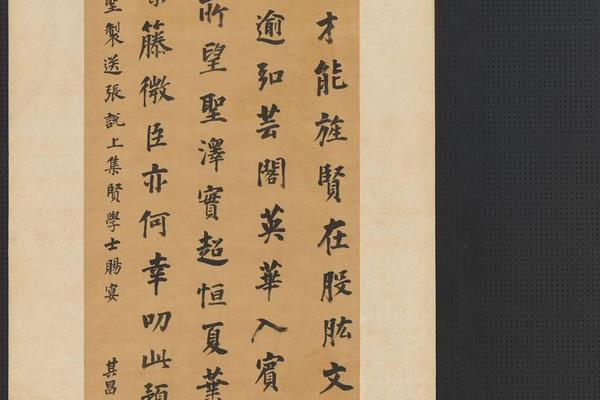 才能旌賢在股肱文
逾弘芸閣英華入賓
所望聖澤實超恒夏葉
藤微臣亦何幸叨此預
聖製送張說上集賢學士賜宴 其昌